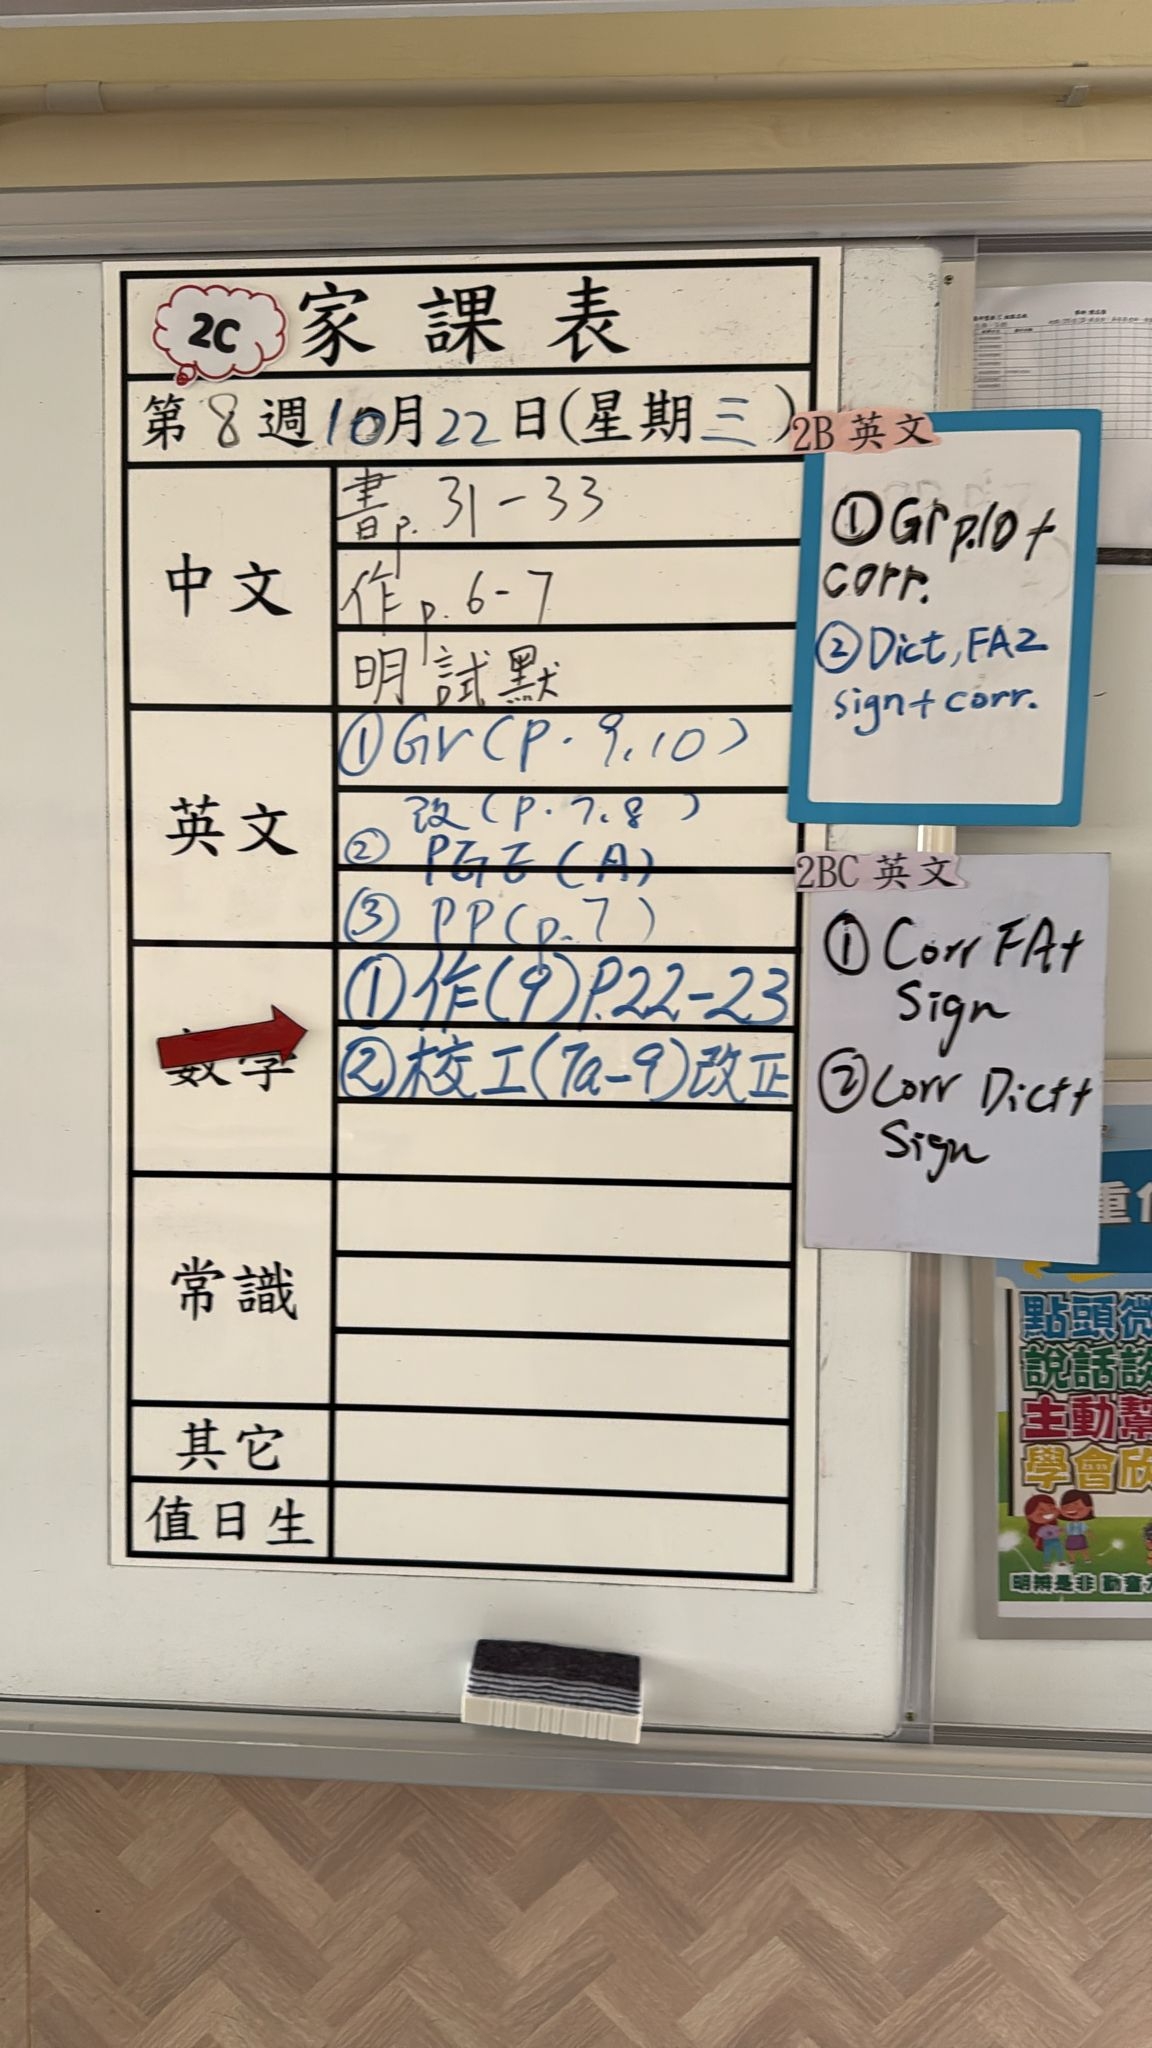 2C 家課表
第8週10月22日(星期三)
中文
書p.31-33
作p.6-7
明試默
英文
①Gr(p.9,10)
改(p.7,8)
② PGE(A)
③ PP(p.7)
數學
①作(9)P.22-23
②校工(7a-9)改正
常識
其它
值日生
2B 英文
①Gr p.10+
corr.
②Dict, FA2
sign+corr.
2BC 英文
①Corr FA+
Sign
②Corr Dict+
Sign
點頭微
說話談
主動幫
學會欣
明辨是非